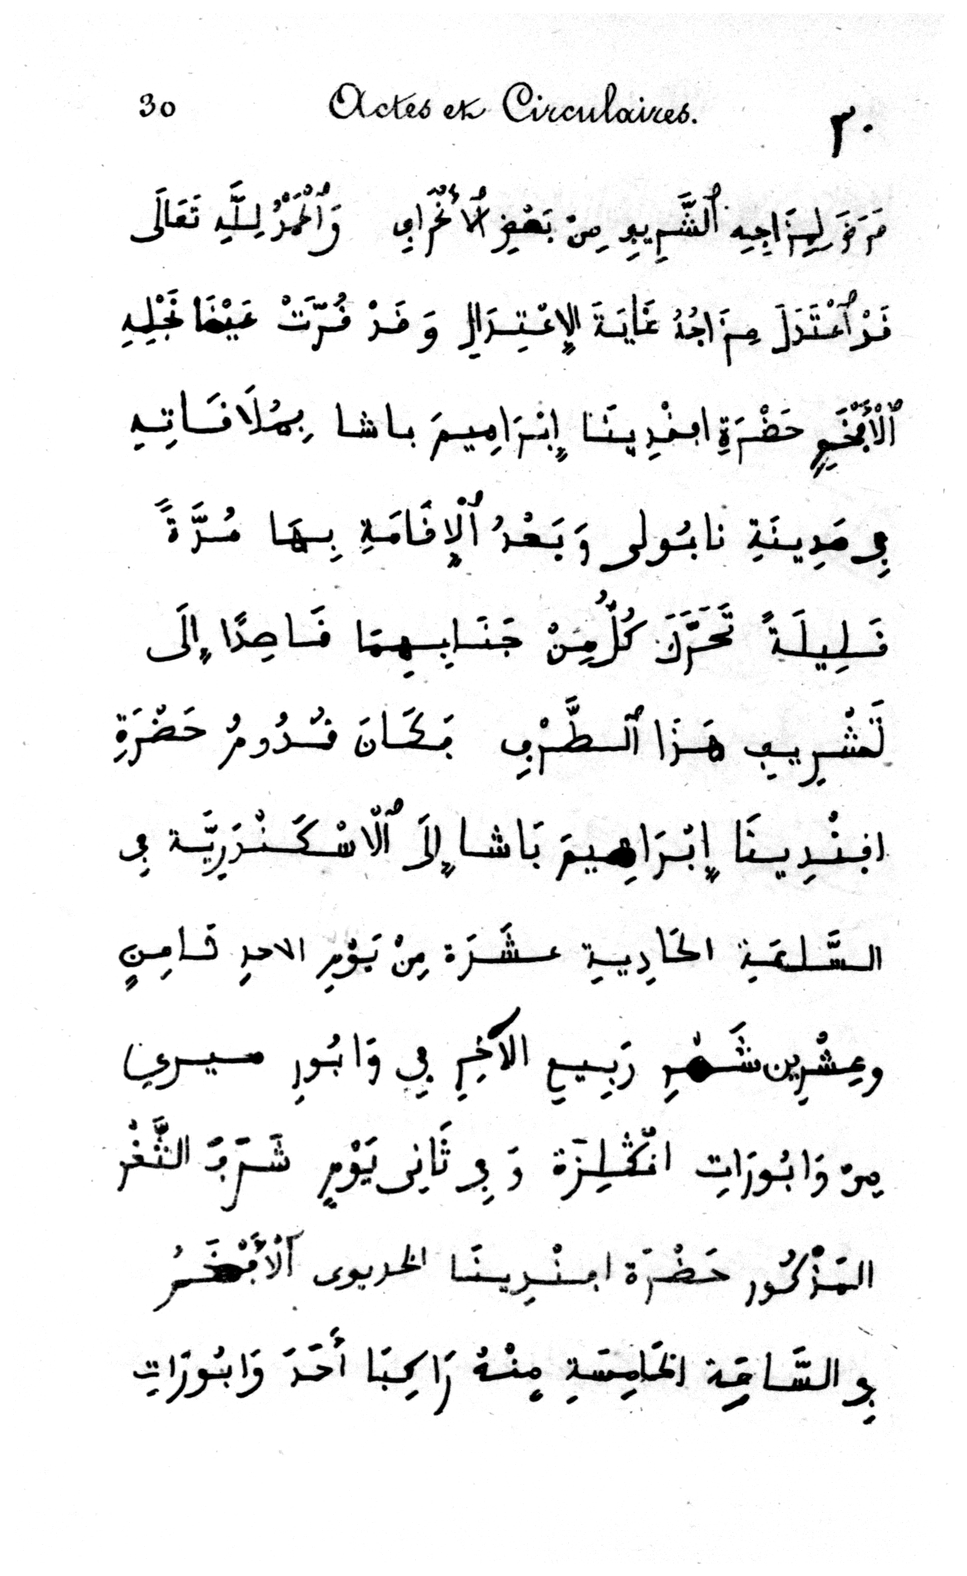 30 Actes et Circulaires. ٣٠
عَرَضَ لِمِزَاجِهِ ٱلشَّرِيفِ مِنْ بَعْضِ ٱلْأَنْحِرَافِ وَٱلْحَمْدُ لِلَّهِ تَعَالَى
قَدْ ٱعْتَدَلَ مِزَاجُهُ غَايَةَ الإِعْتِدَالِ وَقَدْ قُرَّتْ عَيْنَا نَجْلِهِ
ٱلْأَفْخَمِ حَضْرَةِ افَنْدِينَا إِبْرَاهِيمَ باشا بِمُلَاقَاتِهِ
فِي مَدِينَةِ نابُولى وَبَعْدُ ٱلْإِقَامَةِ بِهَا مُدَّةً
قَلِيلَةً تَحَرَّكَ كُلٌّ مِنْ جَنَابِهِمَا قَاصِدًا إِلَى
تَشْرِيفِ هَذَا ٱلطَّرْفِ فَكَانَ قُدُومُ حَضْرَةِ
افَنْدِينَا إِبْرَاهِيمَ بَاشا إِلَى ٱلْاسْكَنْدَرِيَّة فِي
السَّاعَةِ الحَادِيةِ عشَرَة مِنْ يَوْمِ الاحدِ ثَامِنٍ
وعِشْرِين شَهْرِ رَبِيعِ الآخِرِ فِي وَابُورِ ميري
مِنْ وَابُورَاتِ انْكْلِزَة وَفِي ثَانِى يَوْمٍ شَرَّفَ الثَّغْرَ
المَذْكُور حَضْرَة افَنْدِينَا الخديوى ٱلْأَفْخَمُ
فِي السَّاعَة الخَامِسَةِ مِنْهُ رَاكِبًا أَحَدَ وَابُورَاتِ